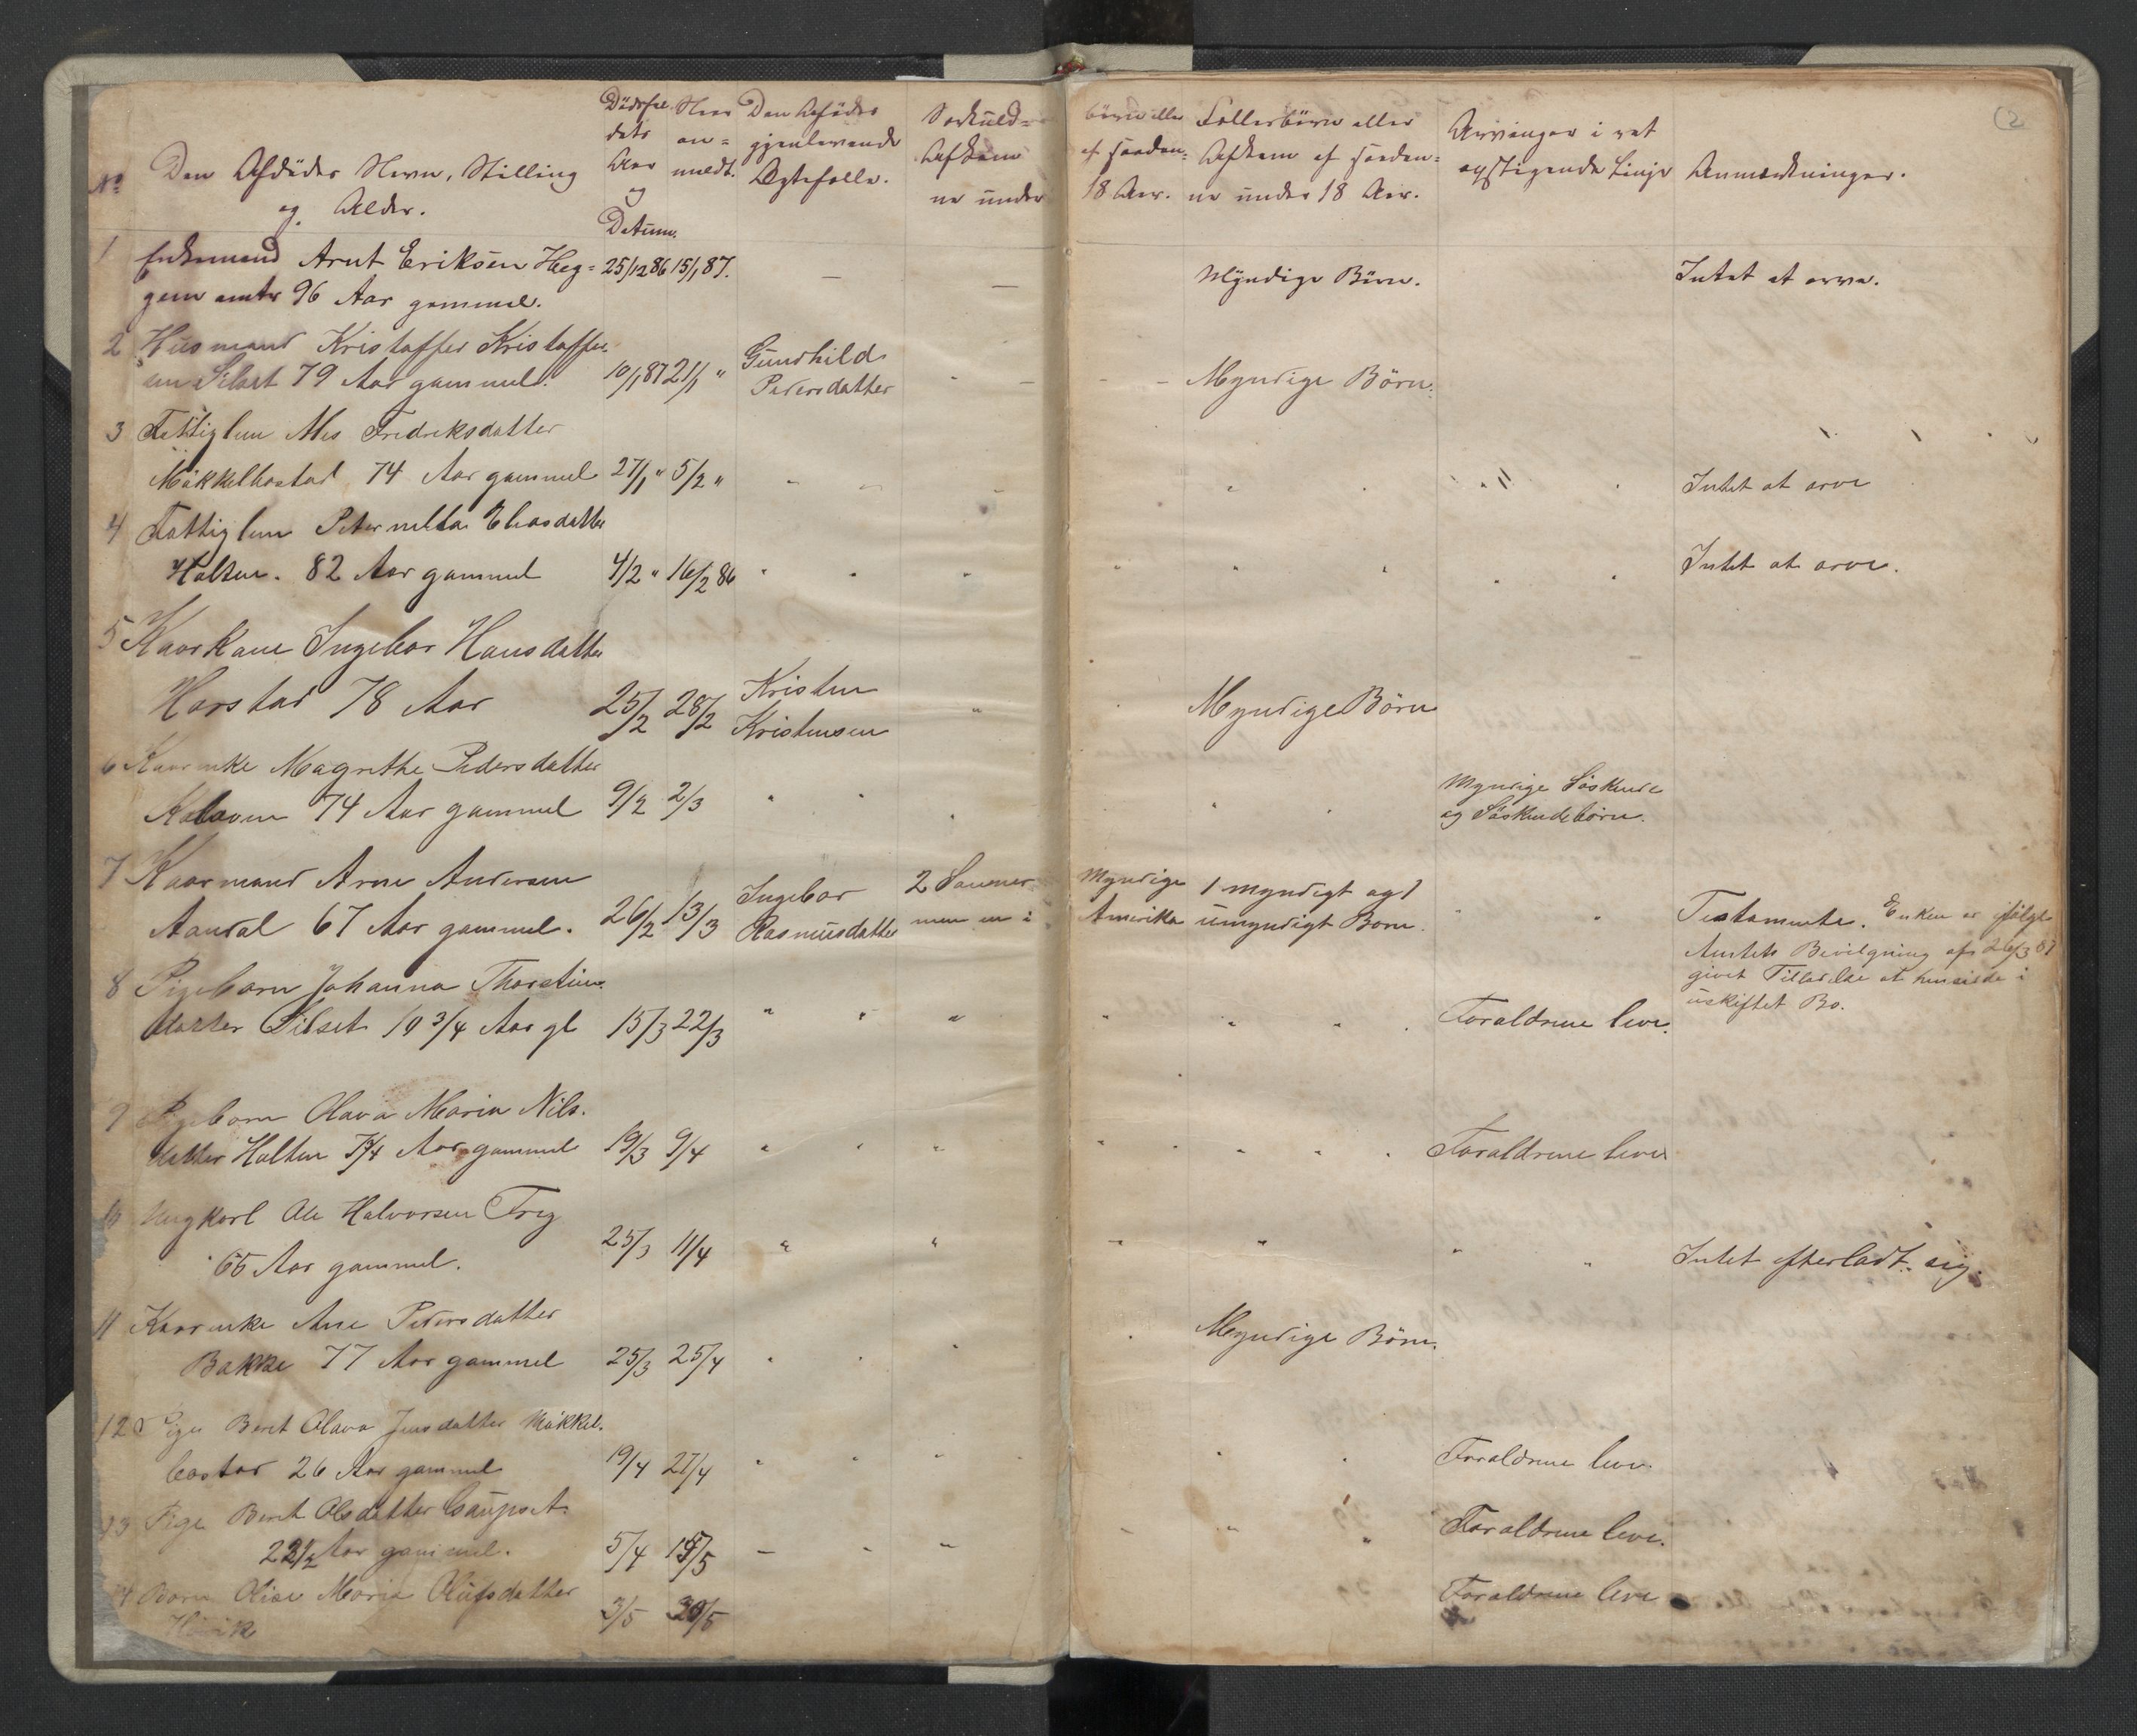 (2
No Den Afdödes Navn, Stilling og Alder.
Dödsfal dets Aar og Datum.
Naar an= meldt.
Den Afdödes gjenlevende Ægtefælle.
Særkuld= Afkom ne under
börn eller af saadan= 18 Aar.
Fællesbörn eller Afkom af saadan= ne under 18 Aar.
Arvinger i ret opstigende Linje
Anmærkninger.
1 Enkemand Arnt Eriksen Heg= 25/12 86 15/1 87. — — Myndige Börn. Intet at arve.
gem 96 Aar gammel.
2 Husmand Kristoffer Kristoffer
sen Silset 79 Aar gammel. 10/1 87 21/1 " Gunhild Pedersdatter Myndige Börn.
3 Fattiglem Fredriksdatter
Mökkelbostad 74 Aar gammel 27/1 " 5/2 " Intet at arve
4 Fattiglem Peternella Eliasdatter
Holten. 82 Aar gammel 4/2 " 16/2 86 Intet at arve.
5 Kaarkone Ingebor Hansdatter
Horstad 78 Aar 25/2 28/2 Kristen Kristensen Myndige Börn
6 Kaarenke Magrethe Pedersdatter
74 Aar gammel 9/2 2/3 Myndige Söskende
og Söskendebörn.
7 Kaarmand Arne Andersen
Aandal 67 Aar gammel. 26/2 13/3 Ingebor Rasmusdatter 2 Sönner men en i
Myndige Amerika 1 myndigt og 1 umyndigt Barn. Testamente. Enken er ifölge
Amtets Bevilgning af 26/3 87
givet Tilladelse at hensidde i
uskiftet Bo.
8 Pigebarn Johanna Thorstens
datter Silset 10 3/4 Aar gl 15/3 22/3 " " " Foraldrene leve.
9 Pigebarn Olava Maria Nils.
datter Holten Aar gammel 19/3 9/4 Foraldrene lever
10 Ungkarl Ole Halvorsen
65 Aar gammel. 25/3 11/4 " " Intet efterladt sig.
11 Kaarenke Ane Pedersdatter
Bakke 77 Aar gammel 25/3 25/4 Myndige Börn.
12 Pige Beret Olava Jensdatter Mökkel.
bostad 26 Aar gammel 19/4 27/4 Foraldrene leve.
13 Pige Beret Olsdatter Gaupset.
22 1/2 Aar gammel. 5/4 15/5 Foraldrene leve.
14 Barn Olise Marie Olufsdatter 3/5 30/5 Foraldrene leve